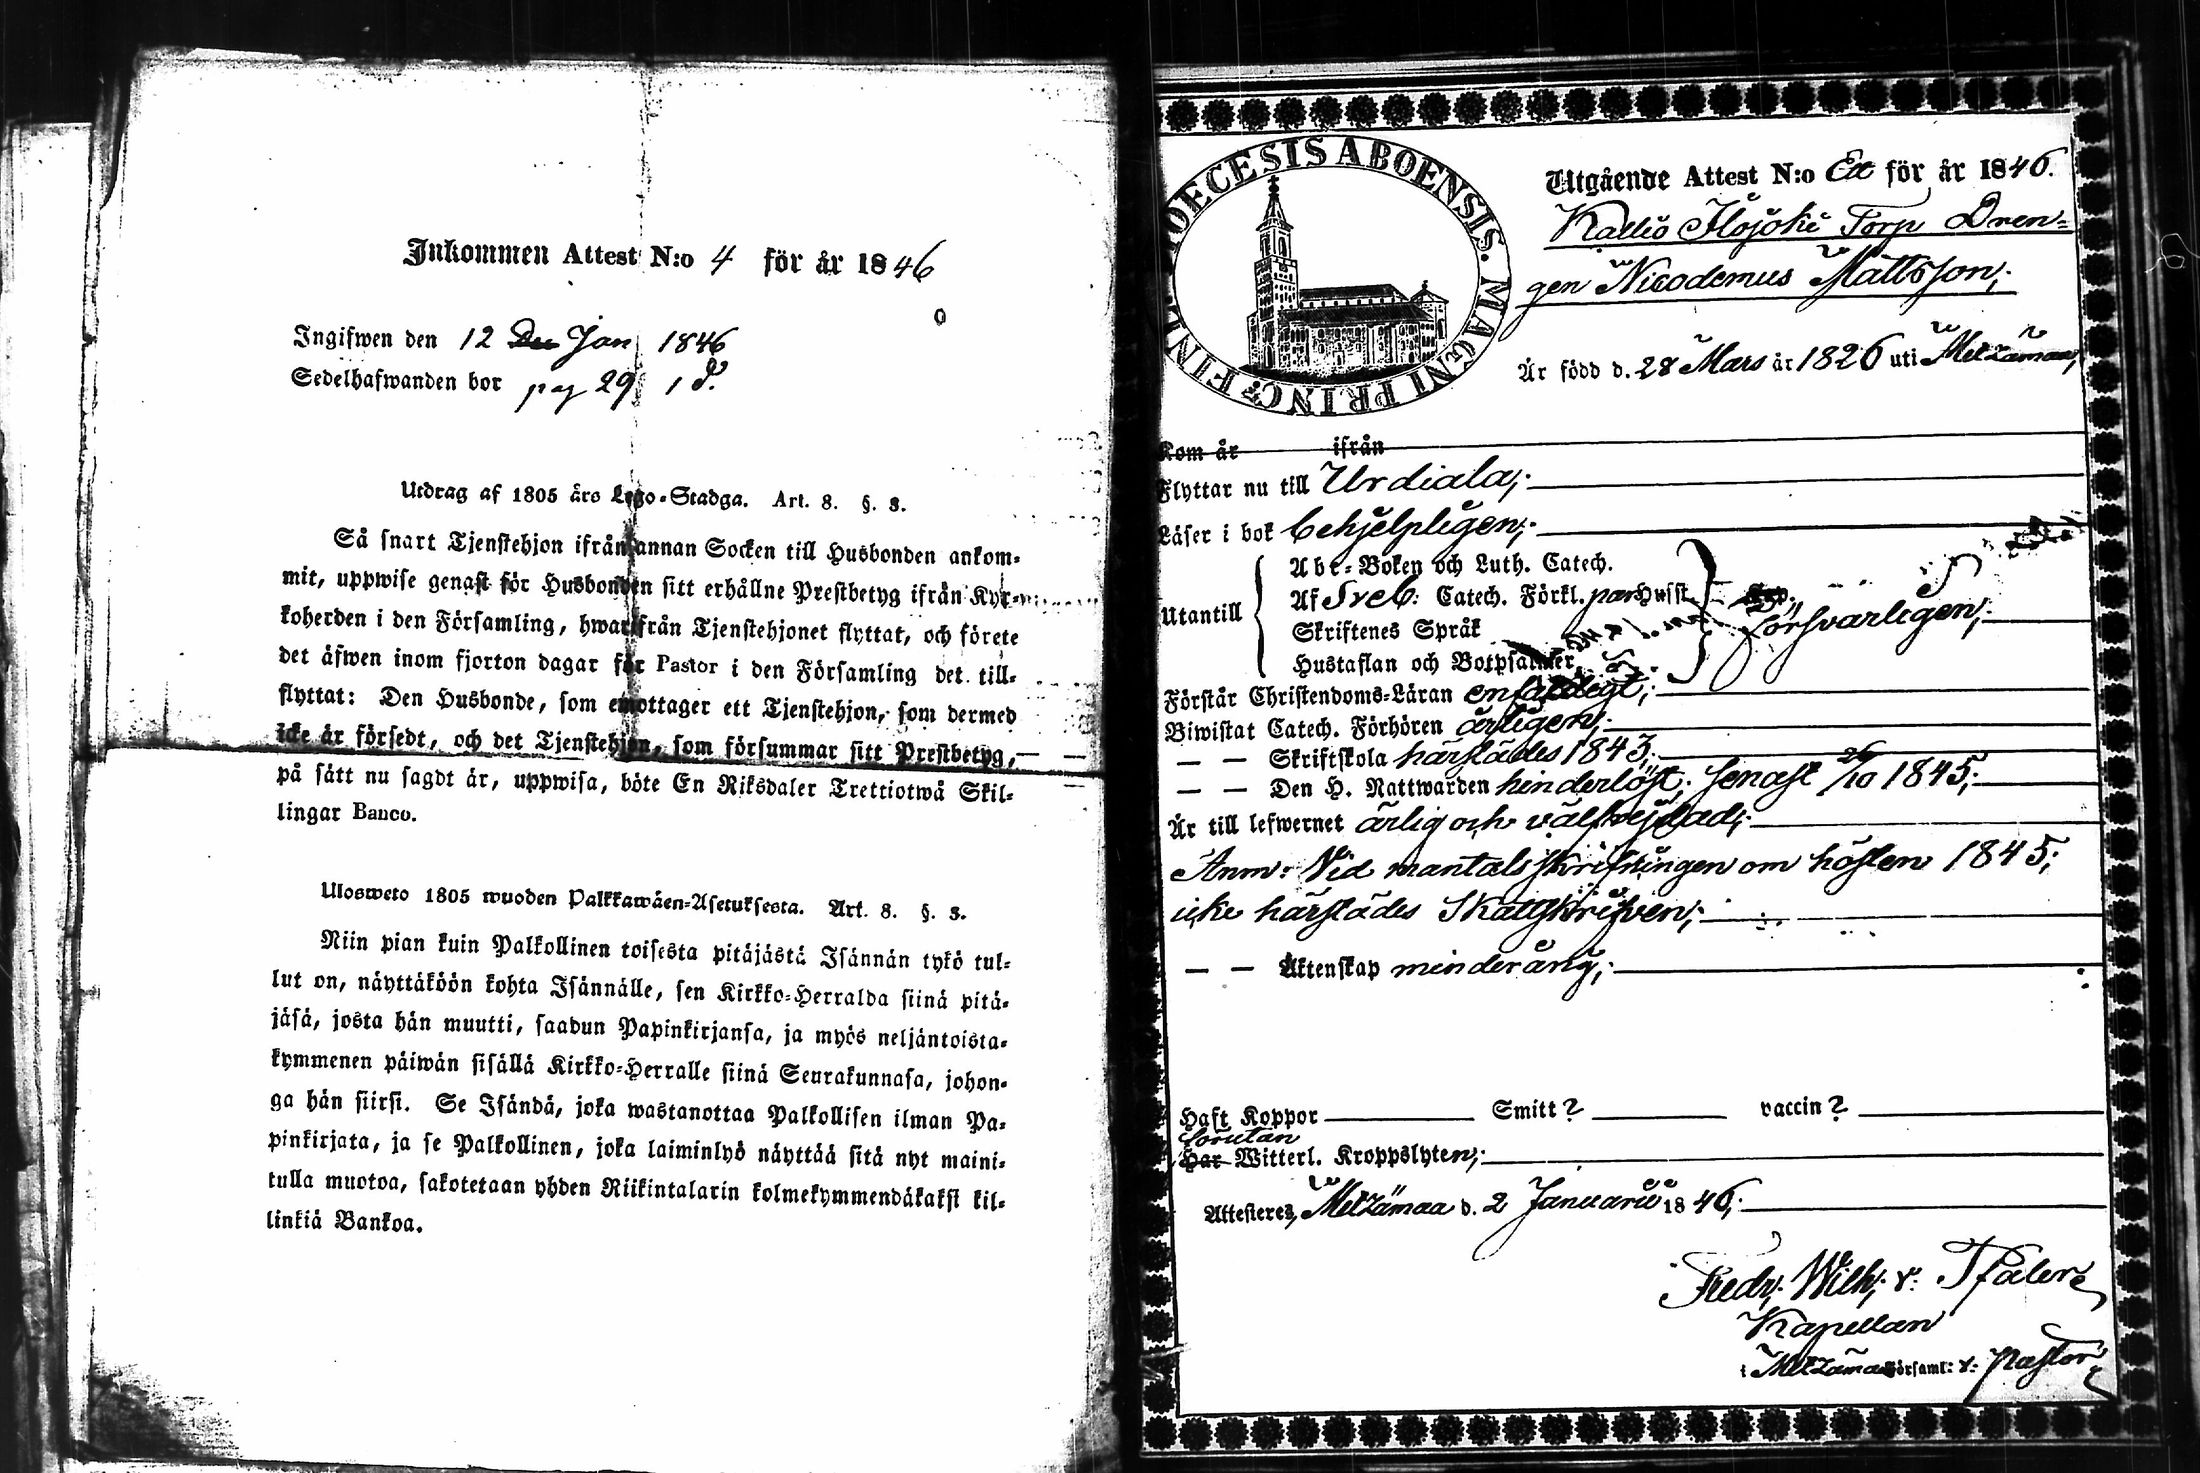 Inkommen Attest N:o 4 för år 1846
Ingifwen den 12 Jan 1846
Sedelhafwanden bor pag 29
Utdrag af 1805 års Lego-Stadga. Art. 8. §. 3.
Så snart Tjenstehjon ifrån annan Socken till Husbonden ankom-
mit, uppwise genast för Husbonden sitt erhållne Prestbetyg ifrån Kyr-
koherden i den Församling, hwarifrån Tjenstehjonet flyttat, och förete
det äfwen inom fjorton dagar för Pastor i den Församling det till-
flyttat: Den Husbonde, som emottager ett Tjenstehjon, som dermed
icke är försedt, och det Tjenstehjon, som försummar sitt Prestbetyg,
på sätt nu sagdt är, uppwisa, böte En Riksdaler Trettiotwå Skil-
lingar Banco.
Ulosweto 1805 wuoden Palkkawäen-Asetuksesta. Art. 8. §. 3.
Niin pian kuin Palkollinen toisesta pitäjästä Isännän tykö tul-
lut on, näyttäköön kohta Isännälle, sen Kirkko-Herralda siinä pitä-
jäsä, josta hän muutti, saadun Papinkirjansa, ja myös neljäntoista-
kymmenen päiwän sisällä Kirkko-Herralle siinä Seurakunnasa, johon-
ga hän siirsi. Se Isändä, joka wastanottaa Palkollisen ilman Pa-
pinkirjata, ja se Palkollinen, joka laiminlyö näyttää sitä nyt maini-
tulla muotoa, sakotetaan yhden Riikintalarin kolmekymmendäkaksi kil-
linkiä Bankoa.
DIOECESIS ABOENSIS. MAGNI PRINC. FINL.
Utgående Attest N:o Ett för år 1846.
Kallio Ilojoki Torp Dren-
gen Nicodemus Mattsson;
Är född d. 28 Mars år 1826 uti Metzämaa;
Kom år ifrån
Flyttar nu till Urdiala;
Läser i bok behjelpligen;
Utantill
Abc-Boken och Luth. Catech.
Af Sveb: Catech. Förkl. Husst.
Skriftenes Språk
Hustaflan och Botpsalmer
försvarligen;
Förstår Christendoms-Läran enfaldigt;
Biwistat Catech. Förhören årligen;
— — Skriftskola härstädes 1843;
— — Den H. Nattwarden hinderlöst; senast 26/10 1845;
Är till lefwernet ärlig och välfrejdad;
Anm: Vid mantalsskrifningen om hösten 1845;
icke härstädes Skattskrifven;
— — Äktenskap minderårig;
Haft Koppor Smitt? vaccin?
förutan
Har Witterl. Kroppslyten;
Attesteres, Metzämaa d. 2 Januarii 1846;
Fredr. Wilh. v. Pfaler
Kapellan
i Metzämaa Församl: v. Pastor